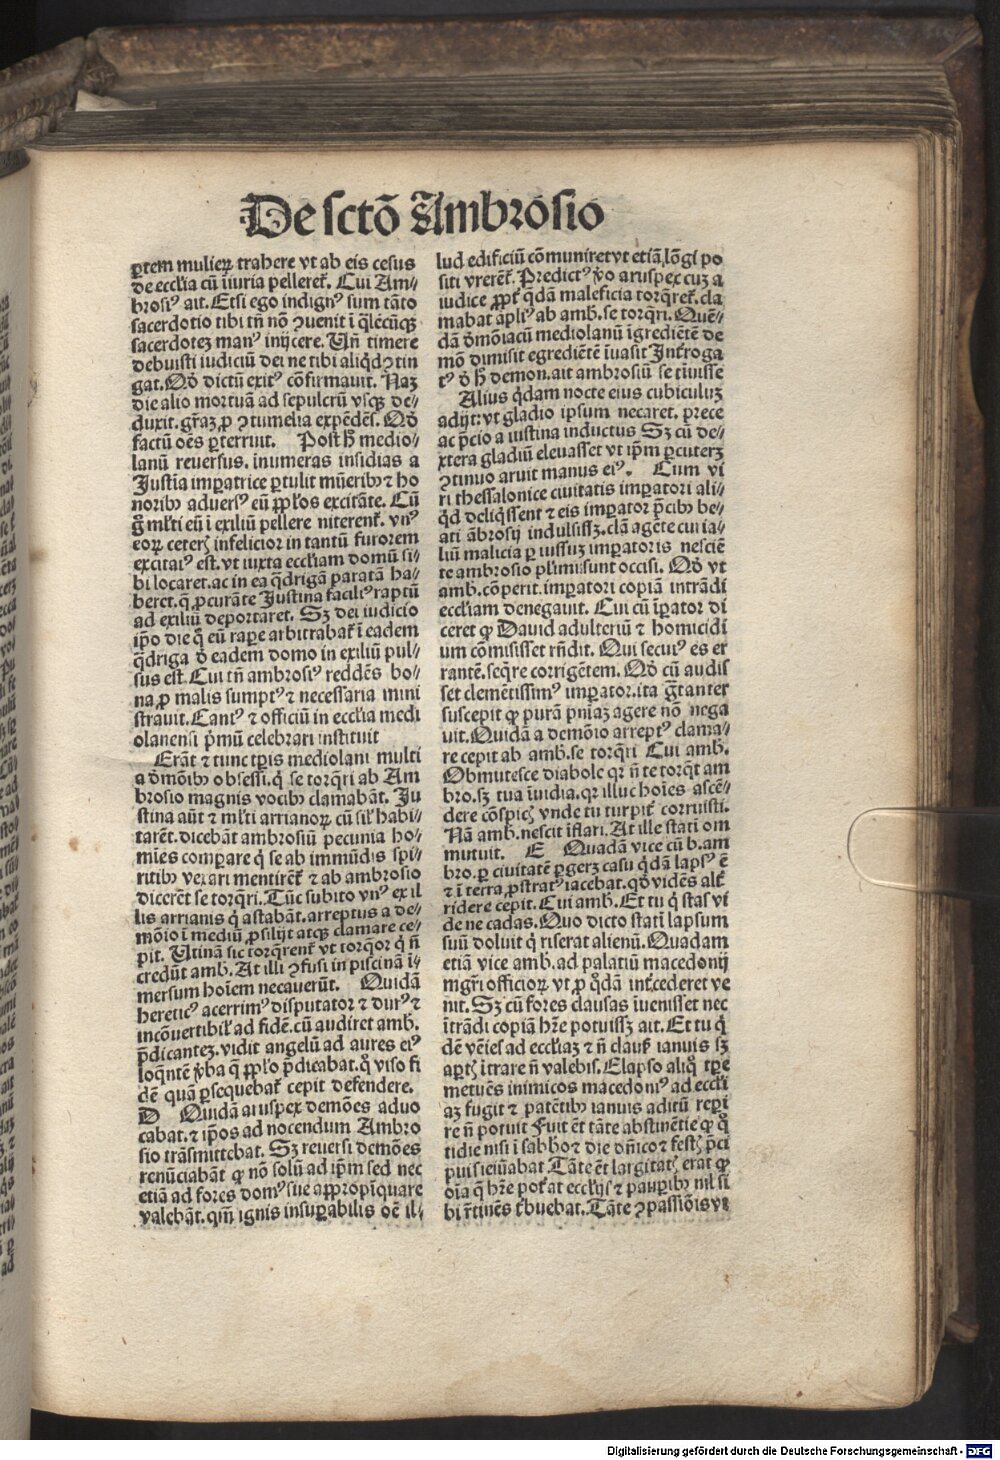 De sctō Ambrosio
ꝑtem mulieꝝ trahere vt ab eis cesus
de ecclīa cū iniuria pelleret᷑. Cui Am⸗
brosiꝰ ait. Etsi ego indignꝰ sum tāto
sacerdotio tibi tn̄ nō ꝯuenit ī q̄lēcūqꝫ
sacerdotez manꝰ inijcere. Un̄ timere
debuisti iudiciū dei ne tibi aliq̇d ↄtin
gat. Qḋ dictū exitꝰ cōfirmauit. Naꝫ
die alio mortuā ad sepulcrū vsqꝫ de⸗
duxit. gr̄az ꝓ ↄtumelia expēdēs. Qḋ
factū oēs ꝑterruit. Post h̄ medio⸗
lanū reuersus. inumeras insidias a
Justīa imꝑatrice ꝑtulit mūeribꝫ ⁊ ho
noribꝫ aduersꝰ eū ꝓp̄los excitāte. Cū
g̊ ml̄ti eū ī exiliū pellere niterent᷑. vnꝰ
eoꝝ ceterꝭ infelicior in tantū furorem
excitatꝰ est. vt iuxta ecclīam domū si⸗
bi locaret. ac in ea q̄drigā paratā ha⸗
beret. q̇ ꝓcurāte Justina faciliꝰ raptū
ad exiliū deportaret. Sꝫ dei iudicio
ip̄o die q̇ eū raꝑe arbitrabat᷑ ī eadem
q̄driga ḋ eadem domo in exiliū pul⸗
sus est. Cui tn̄ ambrosiꝰ reddēs bo⸗
na ꝓ malis sumptꝰ ⁊ necessaria mini
strauit. Cantꝰ ⁊ officiū in ecclīa medi
olanensi p̄mū celebrari instituit
Erāt ⁊ tunc tꝑis mediolani multi
a ḋmōibꝫ obsessi. q̇ se torq̄ri ab Am
brosio magnis vocibꝫ clamabāt. Ju
stina aūt ⁊ ml̄ti arrianoꝝ cū sil̄ habi⸗
tarēt. dicebāt ambrosiū pecunia ho⸗
mīes comparare q̇ se ab immūdis spi⸗
ritibꝫ vexari mentirēt᷑ ⁊ ab ambrosio
dicerēt se torq̄ri. Tūc subito vnꝰ ex il
lis arrianis q̇ astabāt. arreptus a de⸗
mōio ī mediū ꝓsilijt atqꝫ clamare ce⸗
pit. Utinā sic torq̄rent᷑ vt torqor q̇ n̄
credūt amb. At illi ↄfusi in piscinā ī⸗
mersum hoīem necauerūt. Quidā
hereticꝰ acerrimꝰ disputator ⁊ durꝰ ⁊
incōuertibil̄ ad fidē. cū audiret amb.
p̄dicantez. vidit angelū ad aures eiꝰ
loq̄ntē v̇ba q̄ ꝓp̄lo p̄dicabat. q̊ viso fi
dē quā ꝑsequebat᷑ cepit defendere.
D Quidā aruspex demōes aduo
cabat. ⁊ ip̄os ad nocendum Ambro
sio trāsmittebat. Sꝫ reuersi demōes
renūciabāt ꝙ nō solū ad ip̄m sed nec
etiā ad fores domꝰ sue appropīquare
valebāt. qm̄ ignis insuꝑabilis oē il⸗
lud edificiū cōmuniret vt etiā lōgī po
siti vrerent᷑. Predictꝰ v̇o aruspex cuꝫ a
iudice ꝓpt᷑ q̇dā maleficia torq̄ret᷑. cla
mabat ampliꝰ ab amb. se torq̄ri. Quē⸗
dā ḋmōiacū mediolanū īgrediētē de
mō dimisit egrediētē īuasit Jnt᷑roga
tꝰ ḋ h̄ demon. ait ambrosiū se timisse
Alius q̇dam nocte eius cubiculuꝫ
adijt: vt gladio ipsum necaret. prece
ac p̄cio a iustina inductus Sꝫ cū de⸗
xtera gladiū eleuasset vt ip̄m ꝑcuterꝫ
ↄtinuo aruit manus eiꝰ. Cum vi
ri thessalonice ciuitatis imꝑatori ali⸗
q̇d deliq̇ssent ⁊ eis imꝑator p̄cibꝫ be⸗
ati ābrosij indulsissꝫ. clā agēte curia⸗
liū malicia ꝑ iussuꝫ imꝑatoris nesciē
te ambrosio pl̄imi sunt occisi. Qḋ vt
amb. cōperit. imꝑatori copiā intrādi
ecclīam denegauit. Cui cū īꝑator di
ceret ꝙ Dauid adulteriū ⁊ homicidi
um cōmisisset rn̄dit. Qui secutꝰ es er
rantē. seq̄re corrigētem. Qḋ cū audis
set clemētissimꝰ imꝑator. ita gr̄anter
suscepit ꝙ purā pn̄iaꝫ agere nō nega
uit. Quidā a demōio arreptꝰ clama⸗
re cepit ab amb. se torq̄ri Cui amb.
Obmutesce diabole qr n̄ te torq̄t am
bro. sꝫ tua īuidia. qr illuc hoīes ascē⸗
dere cōspicꝭ vnde tu turpit᷑ corruisti.
Nā amb. nescit īflari. At ille statī om
mutuit. E Quadā vice cū b. am
bro. ꝑ ciuitatē ꝑgerꝫ casu q̇dā lapsꝰ ē
⁊ ī terra ꝓstratꝰ iacebat. qḋ vidēs alt᷑
ridere cepit. Cui amb. Et tu q̇ stas vi
de ne cadas. Quo dicto statī lapsum
suū doluit q̇ riserat alienū. Quadam
etiā vice amb. ad palatiū macedonij
mgr̄i officioꝝ vt ꝓ q̇dā int᷑cederet ve
nit. Sꝫ cū fores clausas īuenisset nec
ītrādi copiā hr̄e potuissꝫ ait. Et tu q̇
dē vēies ad ecclīaꝫ ⁊ n̄ clausꝭ ianuis sꝫ
aꝑtꝭ ītrare n̄ valebis. Elapso aliq̊ tꝑe
metuēs inimicos macedoniꝰ ad eccli
aꝫ fugit ⁊ patētibꝫ ianuis aditū reꝑi
re n̄ potuit Fuit ēt tāte abstinētie ꝙ q̊
tidie nisi ī sabbo ⁊ die dn̄ico ⁊ festꝭ p̄ci
puis ieiūabat Tāte ēt largitatꝭ erat ꝙ
oīa q̄ hr̄e pot᷑at ecclijs ⁊ pauꝑibꝫ nil si
bi r̄tinēs t᷑buebat. Tāte ↄpassiōis vt
Digitalisierung gefördert durch die Deutsche Forschungsgemeinschaft - DFG